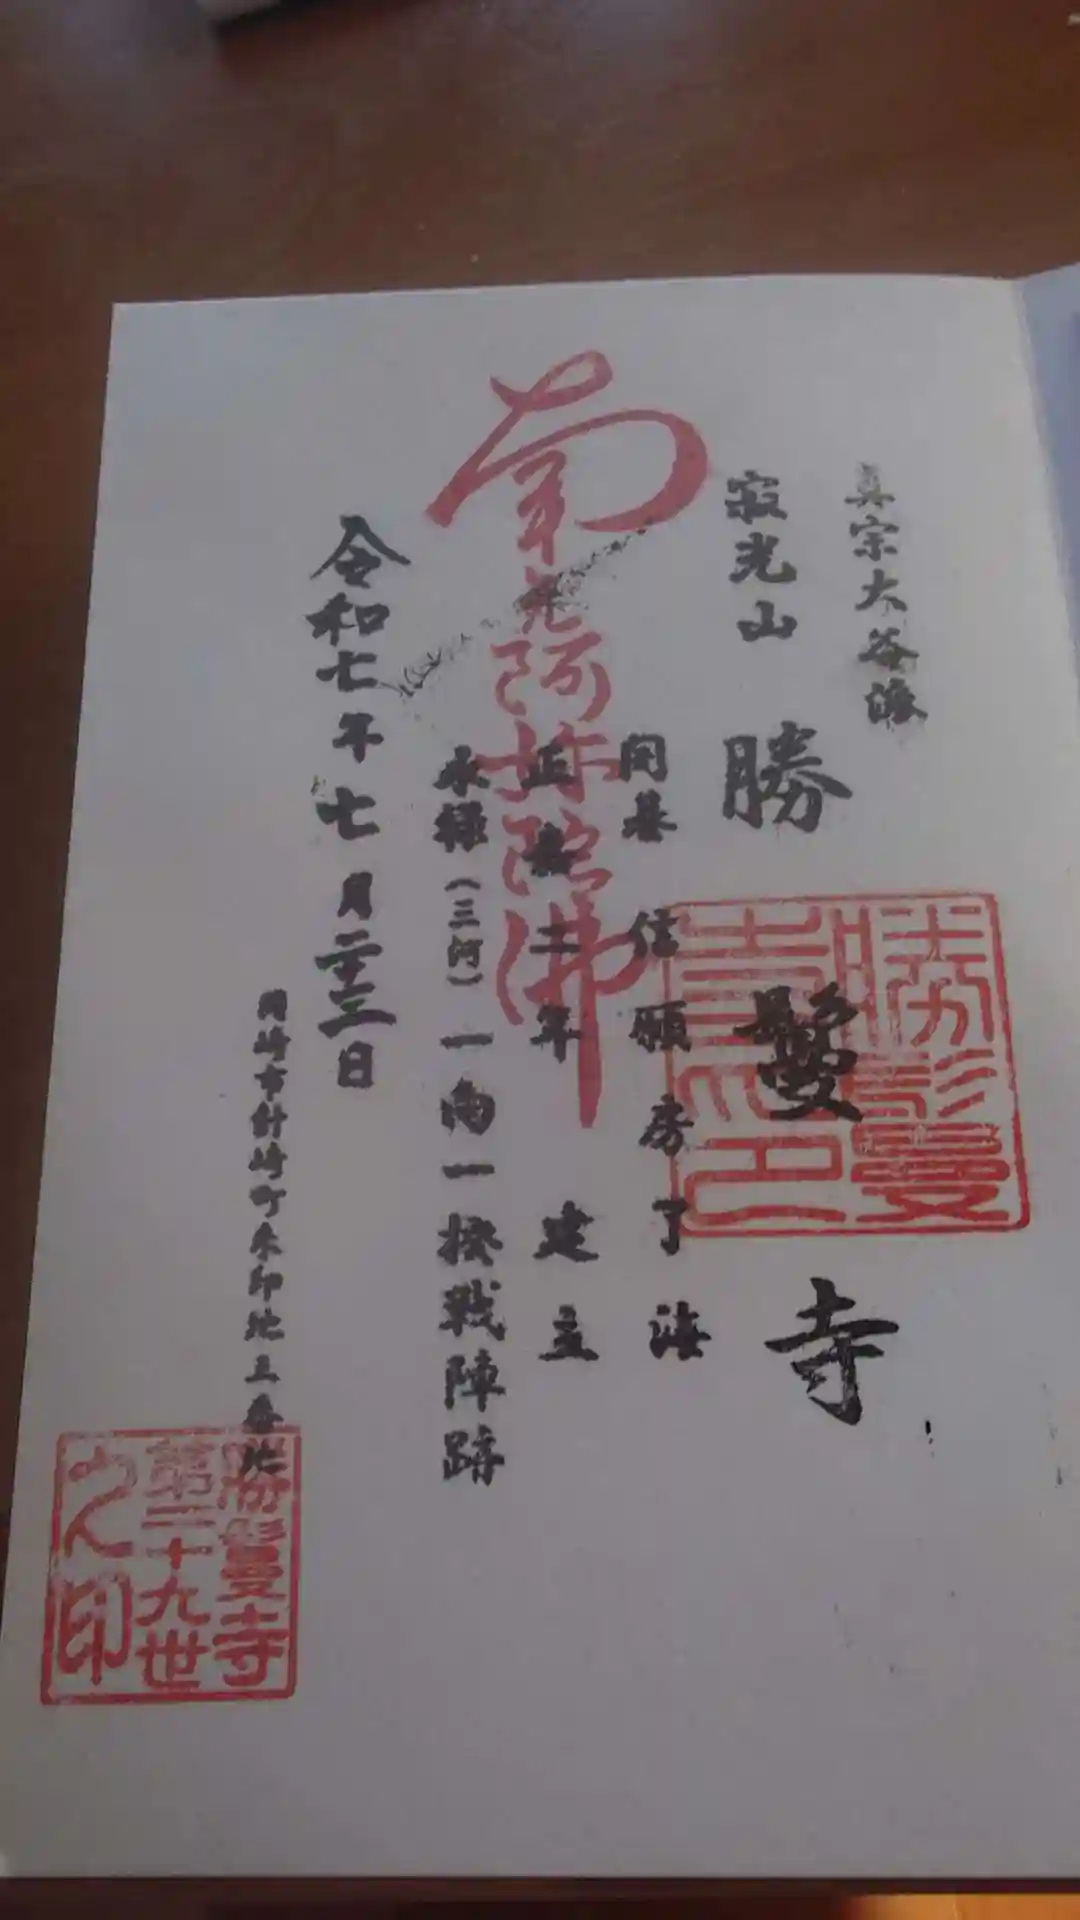 真宗大谷派
寂光山
勝鬘寺
勝鬘寺之印
開基 信願房了海
南無阿弥陀佛
正嘉二年 建立
永禄(三河)一向一揆戦陣跡
令和七年七月二十三日
岡崎市針崎町朱印地三番地
勝鬘寺
第二十九世
之印